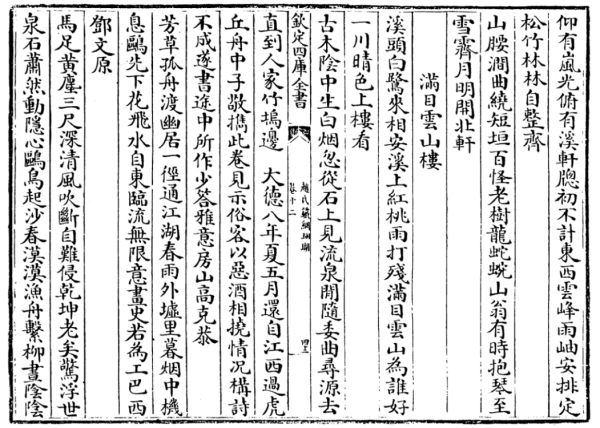 仰有嵐光俯有溪軒牕初不計東西雲峰雨岫安排定
松竹林林自整齊
山腰澗曲繞短垣百怪老樹龍蛇蜿山翁有時抱琴至
雪霽月明開北軒
滿目雲山樓
溪頭白鷺來相安溪上紅桃雨打殘滿目雲山為誰好
一川晴色上樓看
古木陰中生白烟忽從石上見流泉閒隨委曲尋源去
欽定四庫全書
趙氏鐵網珊瑚
卷十二
四三
直到人家竹塢邊　大德八年夏五月還自江西過虎
丘舟中子敬攜此卷見示俗客以惡酒相撓情况構詩
不成遂書途中所作少答雅意房山高克恭
芳草孤舟渡幽居一徑通江湖春雨外墟里暮烟中機
息鷗先下花飛水自東臨流無限意畫史若為工巴西
鄧文原
馬足黃塵三尺深清風吹斷自難侵乾坤老矣驚浮世
泉石蕭然動隱心鷗鳥起沙春漠漠漁舟繫柳晝陰陰